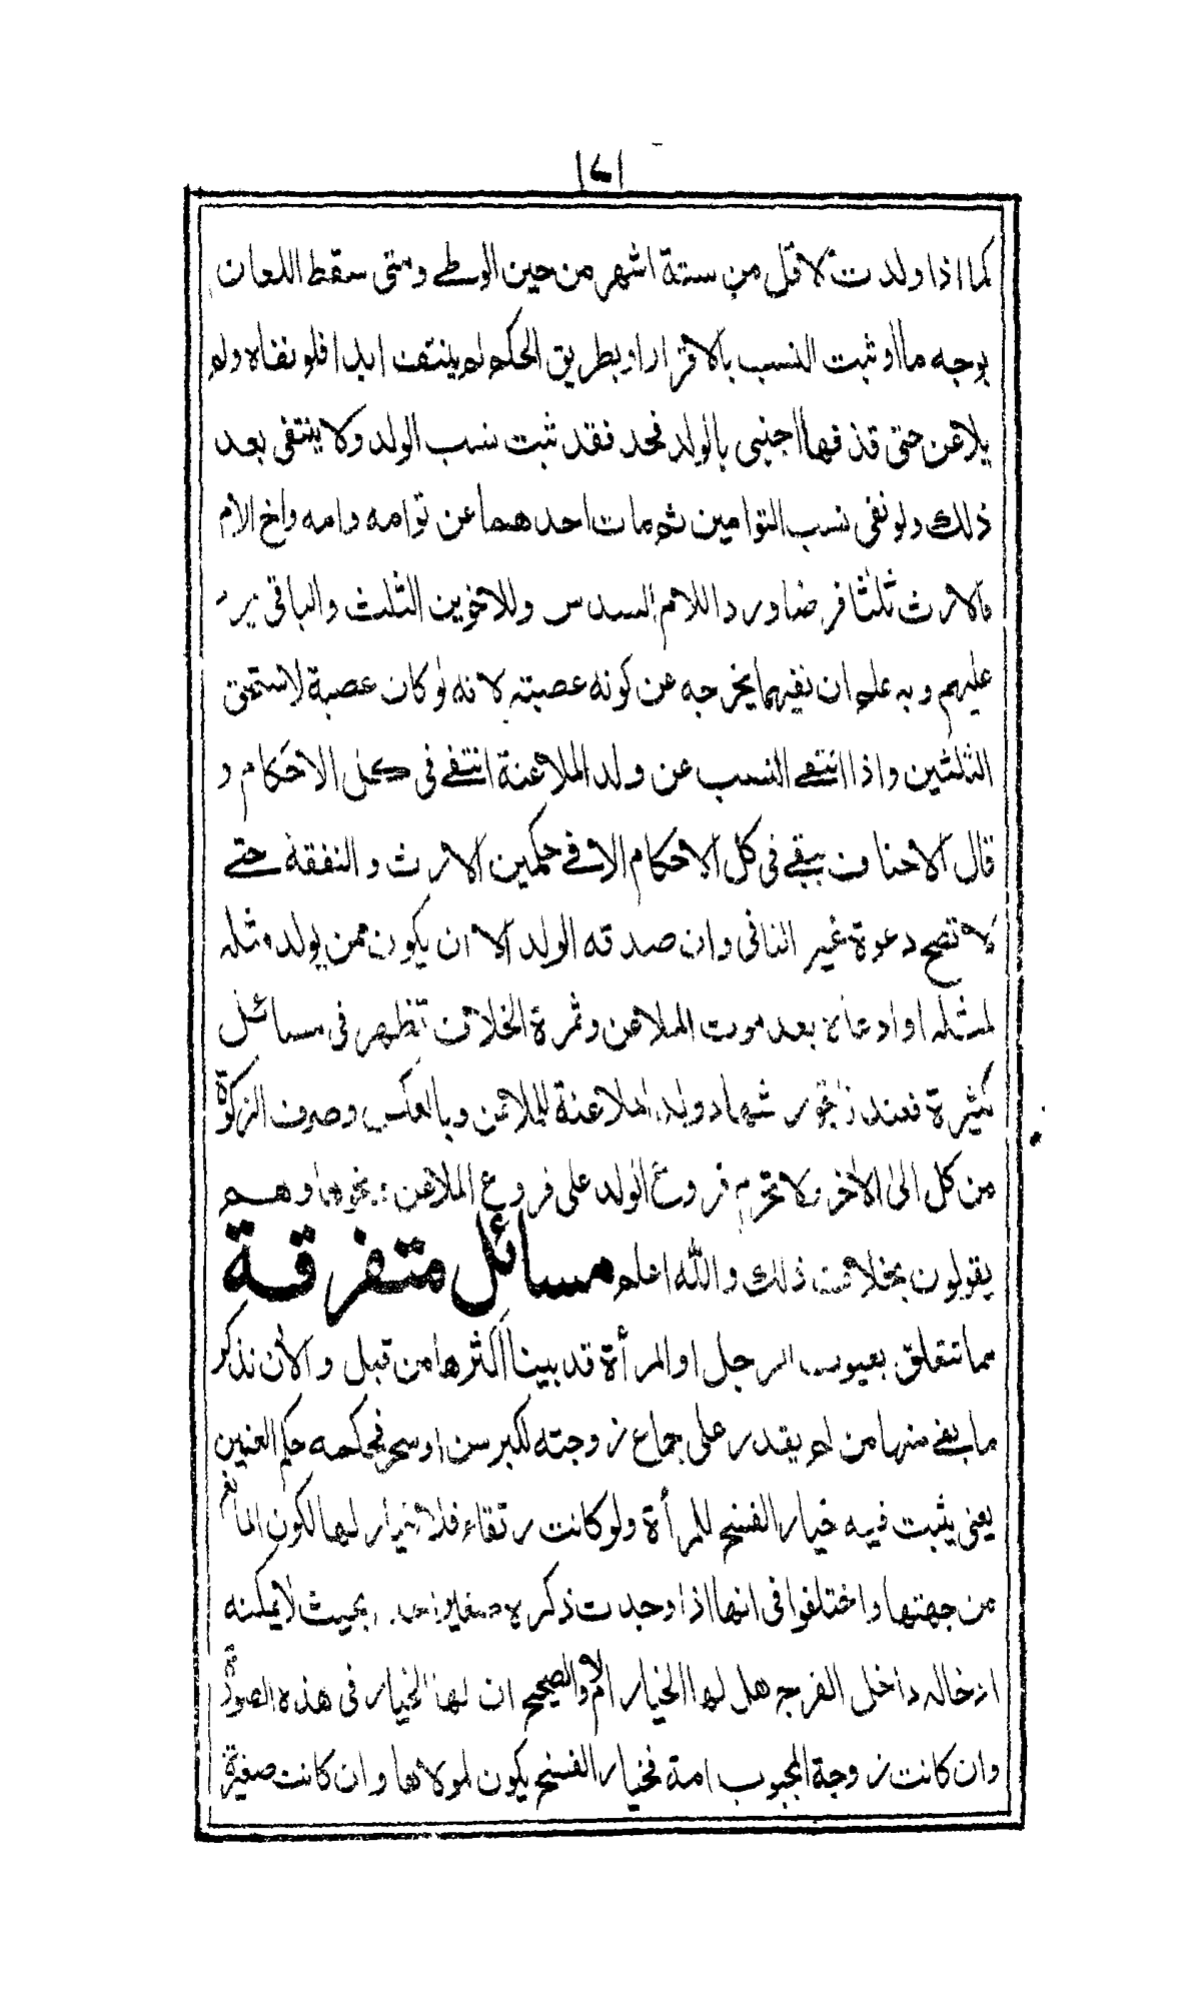 ١٧١
كما اذا ولدت لاقل من ستة اشهر من حين الوطے ومتى سقط اللعان
بوجه ما او ثبت النسب بالاقرار او بطريق الحكم لم ينتف ابدا فلو نفاه ولم
يلاعن حتى قذفها اجنبى بالولد فحد فقد ثبت نسب الولد ولا ينتفى بعد
ذلك ولو نفى نسب التوامين ثم مات احدهما عن توامه وامه واخ الام
فالارث ثلثا فرضا وردا للام السدس وللاخوين الثلث والباقى يرد
عليهم وبه علم ان نفيهما يخرجه عن كونه عصبته لانه لو كان عصبة لاستحق
الثلثين واذا انتفے النسب عن ولد الملاعنة انتفے فى كل الاحكام و
قال الاحناف يبقے فى كل الاحكام الا فے حكمين الارث والنفقة حتے
لا تصح دعوة غير النافى وان صدقه الولد الا ان يكون ممن يولد مثله
لمثله او ادعاه بعد موت الملاعن وثمرة الخلاف تظهر فى مسائل
كثيرة فعندنا تجوز شهادة ولد الملاعنة للملاعن وبالعكس وصرف الزكوة
من كل الى الاخر ولا تحرم فروع الولد على فروع الملاعن ونحوها وهم
يقولون بخلاف ذلك والله اعلم مسائل متفرقة
مما تتعلق بعيوب الرجل او المرأة قد بينا اكثرها من قبل والان نذكر
ما بقے منها من لم يقدر على جماع زوجته لكبر سن او سحر فحكمه حكم العنين
يعنى يثبت فيه خيار الفسخ للمرأة ولو كانت رتقاء فلا خيار لها لكون المانع
من جهتها واختلفوا فى انها اذا وجدت ذكره صغيرا بحيث لا يمكنه
ادخاله داخل الفرج هل لها الخيار ام لا والصحيح ان لها الخيار فى هذه الصورة
وان كانت زوجة المجبوب امة فخيار الفسخ يكون لمولاها وان كانت صغيرة